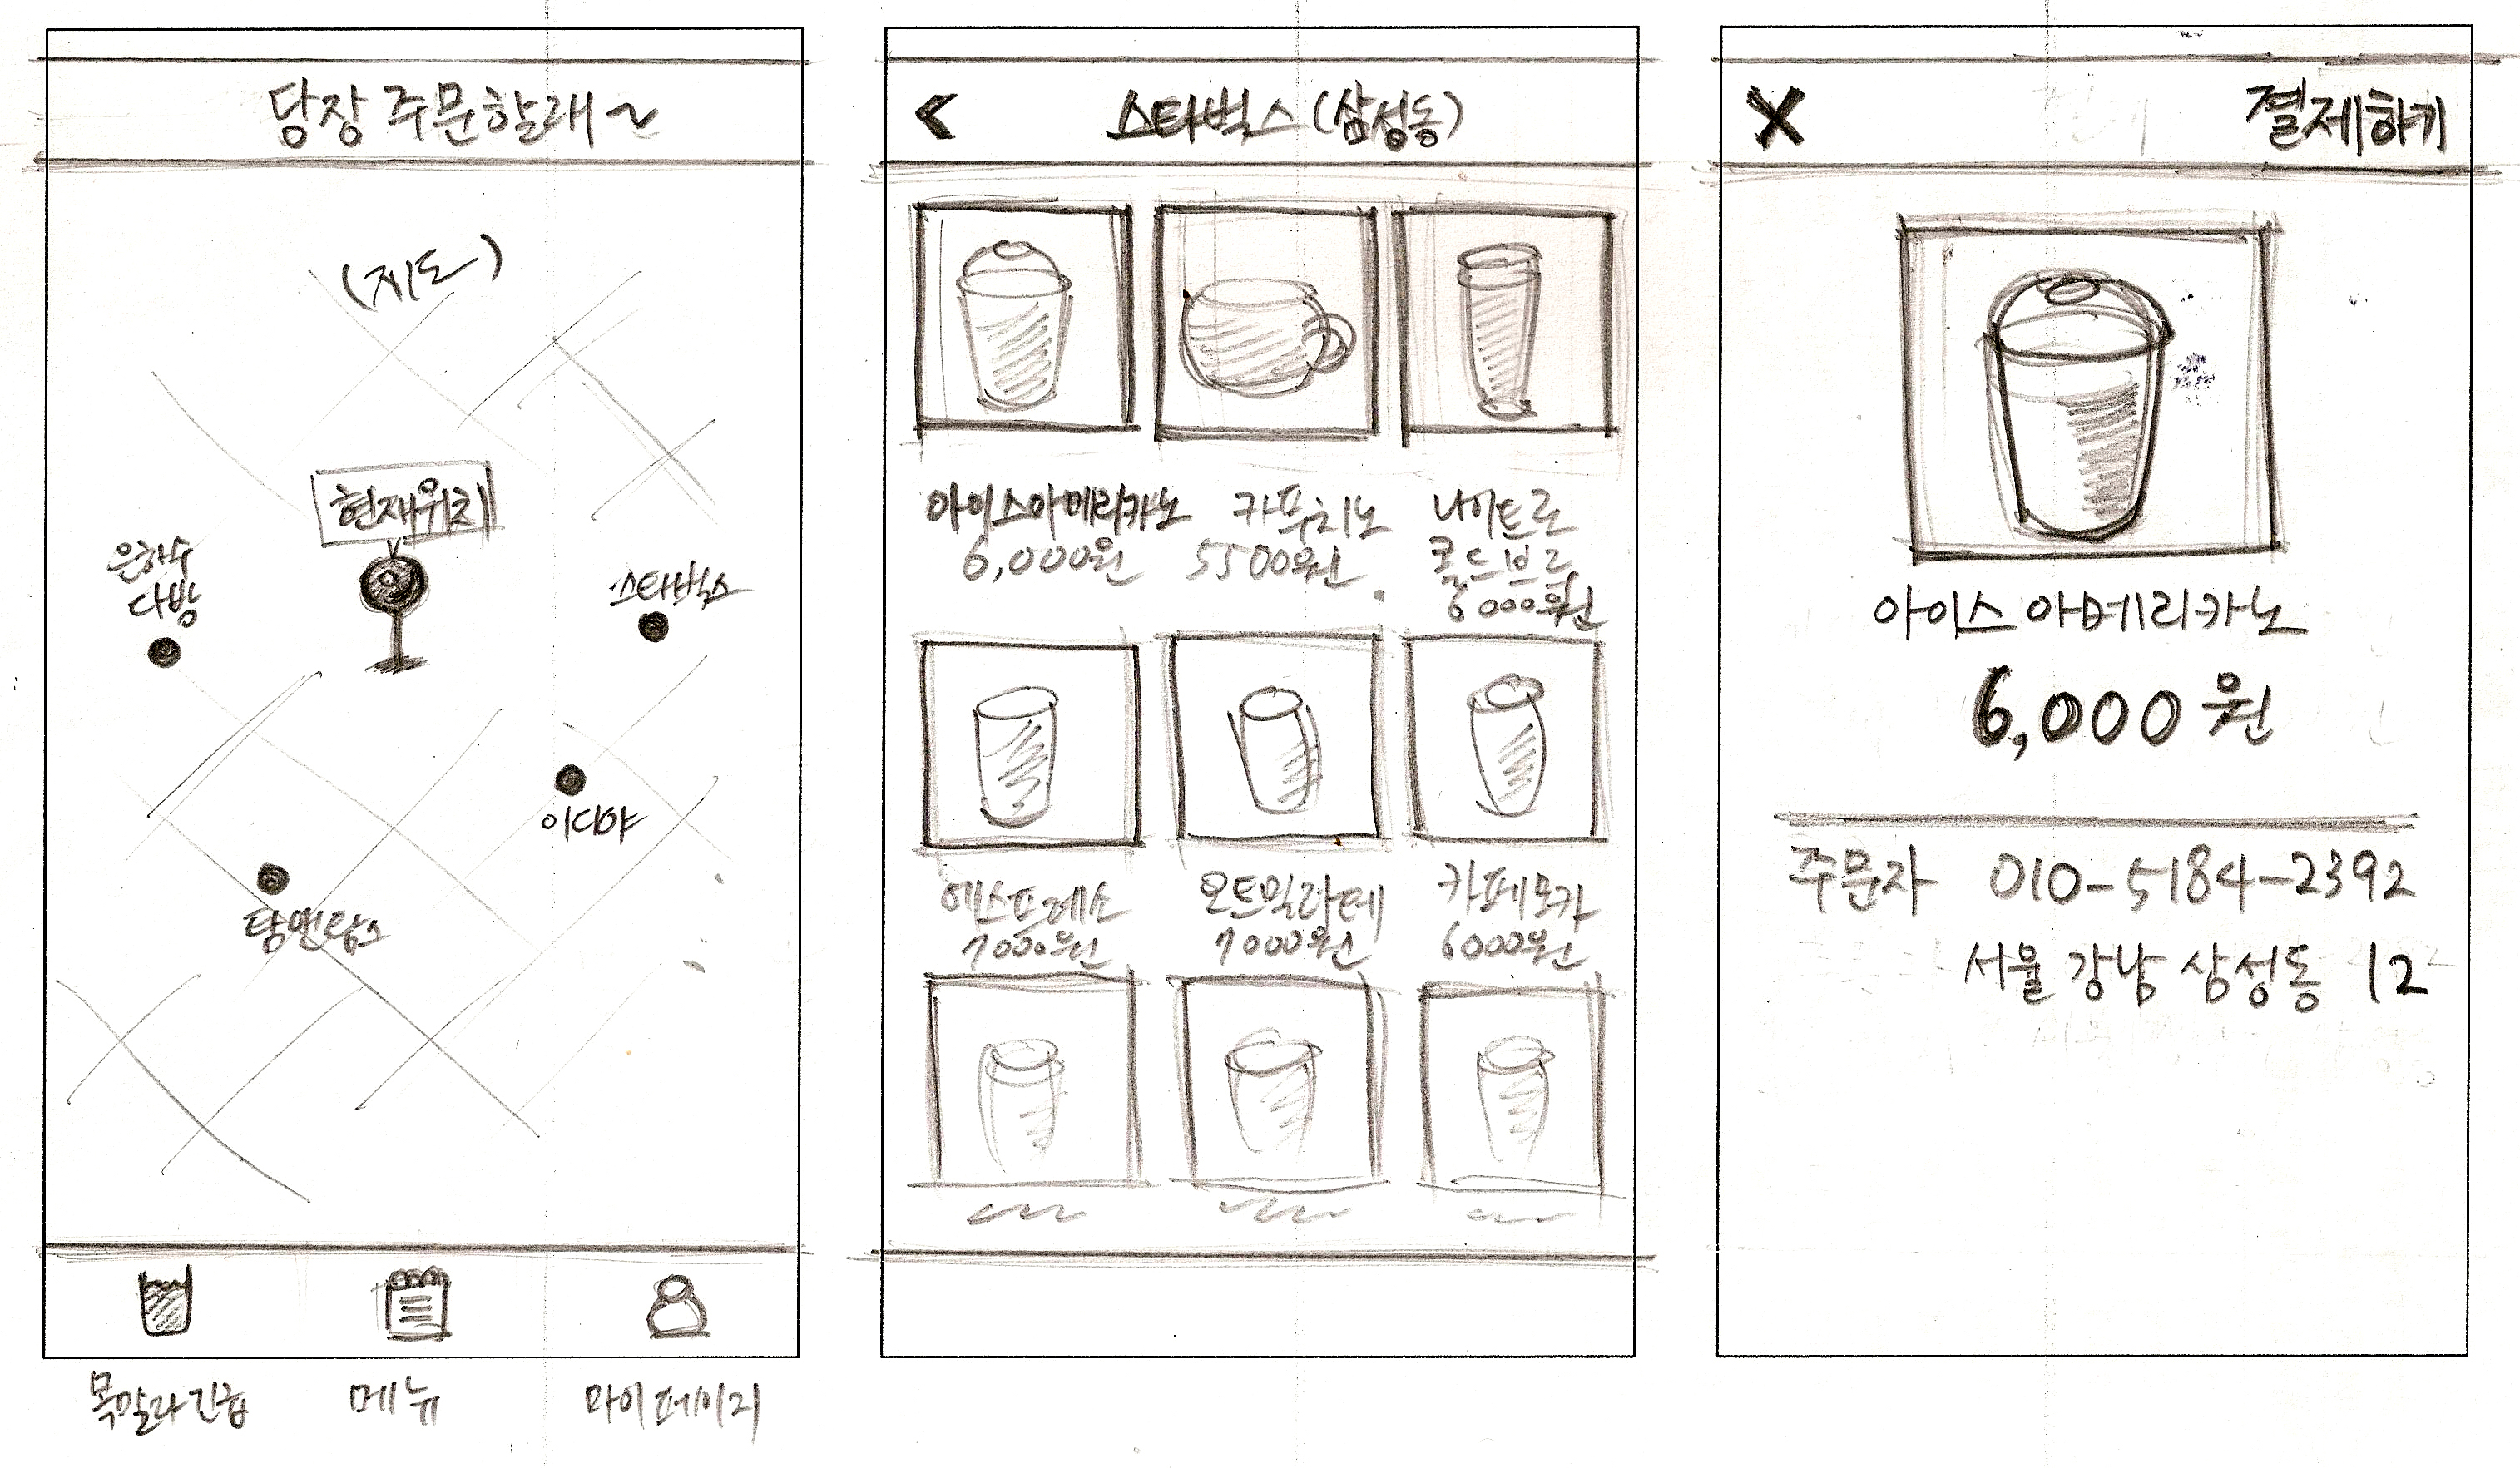 당장 주문할래~
(지도)
현재위치
은하수
다방
스타벅스
이디야
탐앤탐스
목말라긴급
메뉴
마이페이지
<
스타벅스 (삼성동)
아이스아메리카노
6,000원
카푸치노
5500원
나이트로
콜드브루
6000원
에스프레소
7000원
오트밀라떼
7000원
카페모카
6000원
X
결제하기
아이스 아메리카노
6,000원
주문자 010-5184-2392
서울 강남 삼성동 12